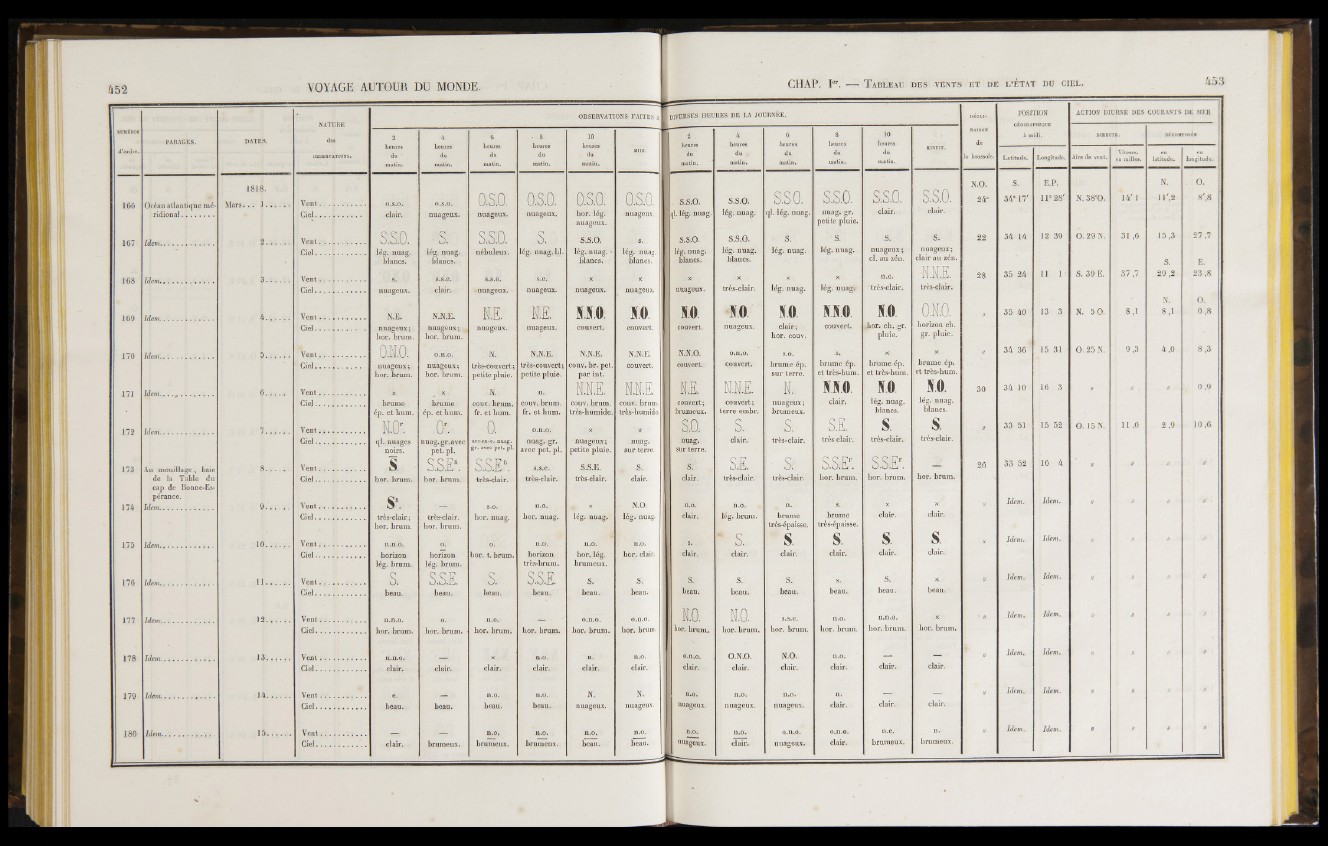 452 VOYAGE AUTOUR DU MONDE.
NUMÉROS d'ordre. PARAGES. DATES. NATURE des OBSERVATIONS. OBSERVATIONS FAITES A
2 heures du matin. 4 heures du matin. 6 heures du matin. 8 heures du matin. 10 heures du matin. MIDI.
1818.
166 Océan atlantique méridional........ Mars... 1...... Vent o.s.o. o.s.o. O.S.O. O.S.O. O.S.O. O.S.O.
Ciel clair. nuageux. nuageux. nuageux. hor. lég. nuageux. nuageux.
167 Idem. 2 Vent S.S.O. S. S.S.O. S. S.S.O. s.
Ciel lég. nuag. blancs. lég. nuag. blancs. nébuleux. lég. nuag. bl. lég. nuag. blancs. lég. nuag. blancs.
168 Idem. 3 Vent s. s.s.e. s.s.e. s.e. × ×
Ciel nuageux. clair. nuageux. nuageux. nuageux. nuageux.
169 Idem. 4 Vent N.E. N.N.E. N.E. N.E. N.N.O. N.O.
Ciel nuageux; hor. brum. nuageux; hor. brum. nuageux. nuageux. couvert. couvert.
170 Idem. 5 Vent O.N.O. o.n.o. N. N.N.E. N.N.E. N.N.E.
Ciel nuageux; hor. brum. nuageux; hor. brum. très-couvert; petite pluie. très-couvert; petite pluie. couv. br. pet. par int. couvert.
171 Idem. 6 Vent × × N. n. N.N.E. N.N.E.
Ciel brume ép. et hum. brume ép. et hum. couv. brum. fr. et hum. couv. brum. fr. et hum. couv. brum. très-humide. couv. brum. très-humide
172 Idem. 7 Vent N.Oʳ. Oʳ. O. o.n.o. × ×
Ciel ql. nuages noirs. nuag. gr. avec pet. pl. gr. avec pet. pl. nuag. gr. avec pet. pl. nuageux; petite pluie. nuag. sur terre.
173 Au mouillage, baie de la Table du cap de Bonne-Espérance. 8 Vent S S.S.E. S.S.E. s.s.e. S.S.E. S.
Ciel hor. brum. hor. brum. très-clair. très-clair. très-clair. clair.
174 Idem. 9 Vent S. — s.o. n.o. × N.O.
Ciel très-clair; hor. brum. très-clair. hor. brum. hor. nuag. hor. nuag. lég. nuag. lég. nuag.
175 Idem. 10 Vent n.n.o. o. o. n.o. n.o. n.o.
Ciel horizon lég. brum. horizon lég. brum. hor. t. brum. horizon très-brum. hor. lég. brumeux. hor. clair.
176 Idem. 11 Vent S. S.S.E. S. S.S.E. S. S.
Ciel beau. beau. beau. beau. beau. beau.
177 Idem. 12 Vent n.n.o. o. n.o. — o.n.o. o.n.o.
Ciel hor. brum. hor. brum. hor. brum. hor. brum. hor. brum. hor. brum.
178 Idem. 13 Vent n.n.o. — × n.o. n. n.o.
Ciel clair. clair. clair. clair. clair. clair.
179 Idem. 14 Vent e. — n.o. n.o. N. N.
Ciel beau. beau. beau. beau. nuageux. nuageux.
180 Idem. 15 Vent — — n.o. n.o. n.o. n.o.
Ciel clair. brumeux. brumeux. brumeux. beau. beau.
CHAP. Iᵉʳ. — TABLEAU DES VENTS ET DE L'ÉTAT DU CIEL. 453
DIVERSES HEURES DE LA JOURNÉE. DÉCLINAISON de la boussole. POSITION GÉOGRAPHIQUE à midi. ACTION DIURNE DES COURANTS DE MER
2 heures du matin. 4 heures du matin. 6 heures du matin. 8 heures du matin. 10 heures du matin. MINUIT. Latitude. Longitude. DIRECTE. Aire de vent. Vitesse, en milles. DÉCOMPOSÉE en latitude. en longitude.
N.O. S. E.P. N. O.
S.S.O. S.S.O. S.S.O. S.S.O. S.S.O. S.S.O. 24° 34° 17′ 11° 28′ N. 38°O. 14′ 1 11′,2 8′,8
ql. lég. nuag. lég. nuag. ql. lég. nuag. nuag. gr. petite pluie. clair. clair.
S.S.O. S.S.O. S. S. S. S. 22 34 14 12 39 O. 29 N. 31 ,6 15 ,3 27 ,7
lég. nuag. blancs. lég. nuag. blancs. lég. nuag. lég. nuag. nuageux; cl. au zén. nuageux; clair au zén.
S. E.
× × × × n.o. N.N.E. 28 35 24 11 1 S. 39 E. 37 ,7 29 ,2 23 ,8
nuageux. très-clair. lég. nuag. lég. nuag. très-clair. très-clair.
N. O.
N.O. N.O. N.O. N.N.O. N.O. O.N.O. " 35 40 13 3 N. 5 O. 8 ,1 8 ,1 0 ,8
couvert. nuageux. clair; hor. couv. couvert. hor. ch. gr. pluie. horizon ch. gr. pluie.
N.N.O. o.n.o. s.o. s. × × " 34 36 15 31 O. 25 N. 9 ,3 4 ,0 8 ,3
couvert. couvert. brume ép. sur terre. brume ép. et très-hum. brume ép. et très-hum. brume ép. et très-hum.
N.E. N.N.E. N. N.N.O. N.O. N.O. 30 34 10 16 3 " " " 0 ,9
couvert; brumeux. couvert; terre embr. nuageux; brumeux. clair. lég. nuag. blancs. lég. nuag. blancs.
S.O. S. S. S.E. S. S. " 33 51 15 52 O. 15 N. 11 ,0 2 ,9 10 ,6
nuag. sur terre. clair. très-clair. très-clair. très-clair. très-clair.
S. S.E. S. S.S.Eʳ. S.S.Eʳ. — 26 33 52 16 4 " " " "
clair. très-clair. très-clair. hor. brum. hor. brum. hor. brum.
n.o. n.o. n. s. × × " Idem. Idem. " " " "
clair. lég. brum. brume très-épaisse. brume très-épaisse. clair. clair.
s. S. S. S. S. S. " Idem. Idem. " " " "
clair. clair. clair. clair. clair. clair.
S. S. S. s. S. × " Idem. Idem. " " " "
beau. beau. beau. beau. beau. beau.
N.O. N.O. s.s.e. n.o. n.n.o. × " Idem. Idem. " " " "
hor. brum. hor. brum. hor. brum. hor. brum. hor. brum. hor. brum.
o.n.o. O.N.O. N.O. n.o. — — " Idem. Idem. " " " "
clair. clair. clair. clair. clair. clair.
n.o. n.o. n.o. n. — — " Idem. Idem. " " " "
nuageux. nuageux. nuageux. clair. clair. clair.
n.o. n.o. o.n.o. o.n.o. n.e. n. " Idem. Idem. " " " "
nuageux. clair. nuageux. clair. brumeux. brumeux.